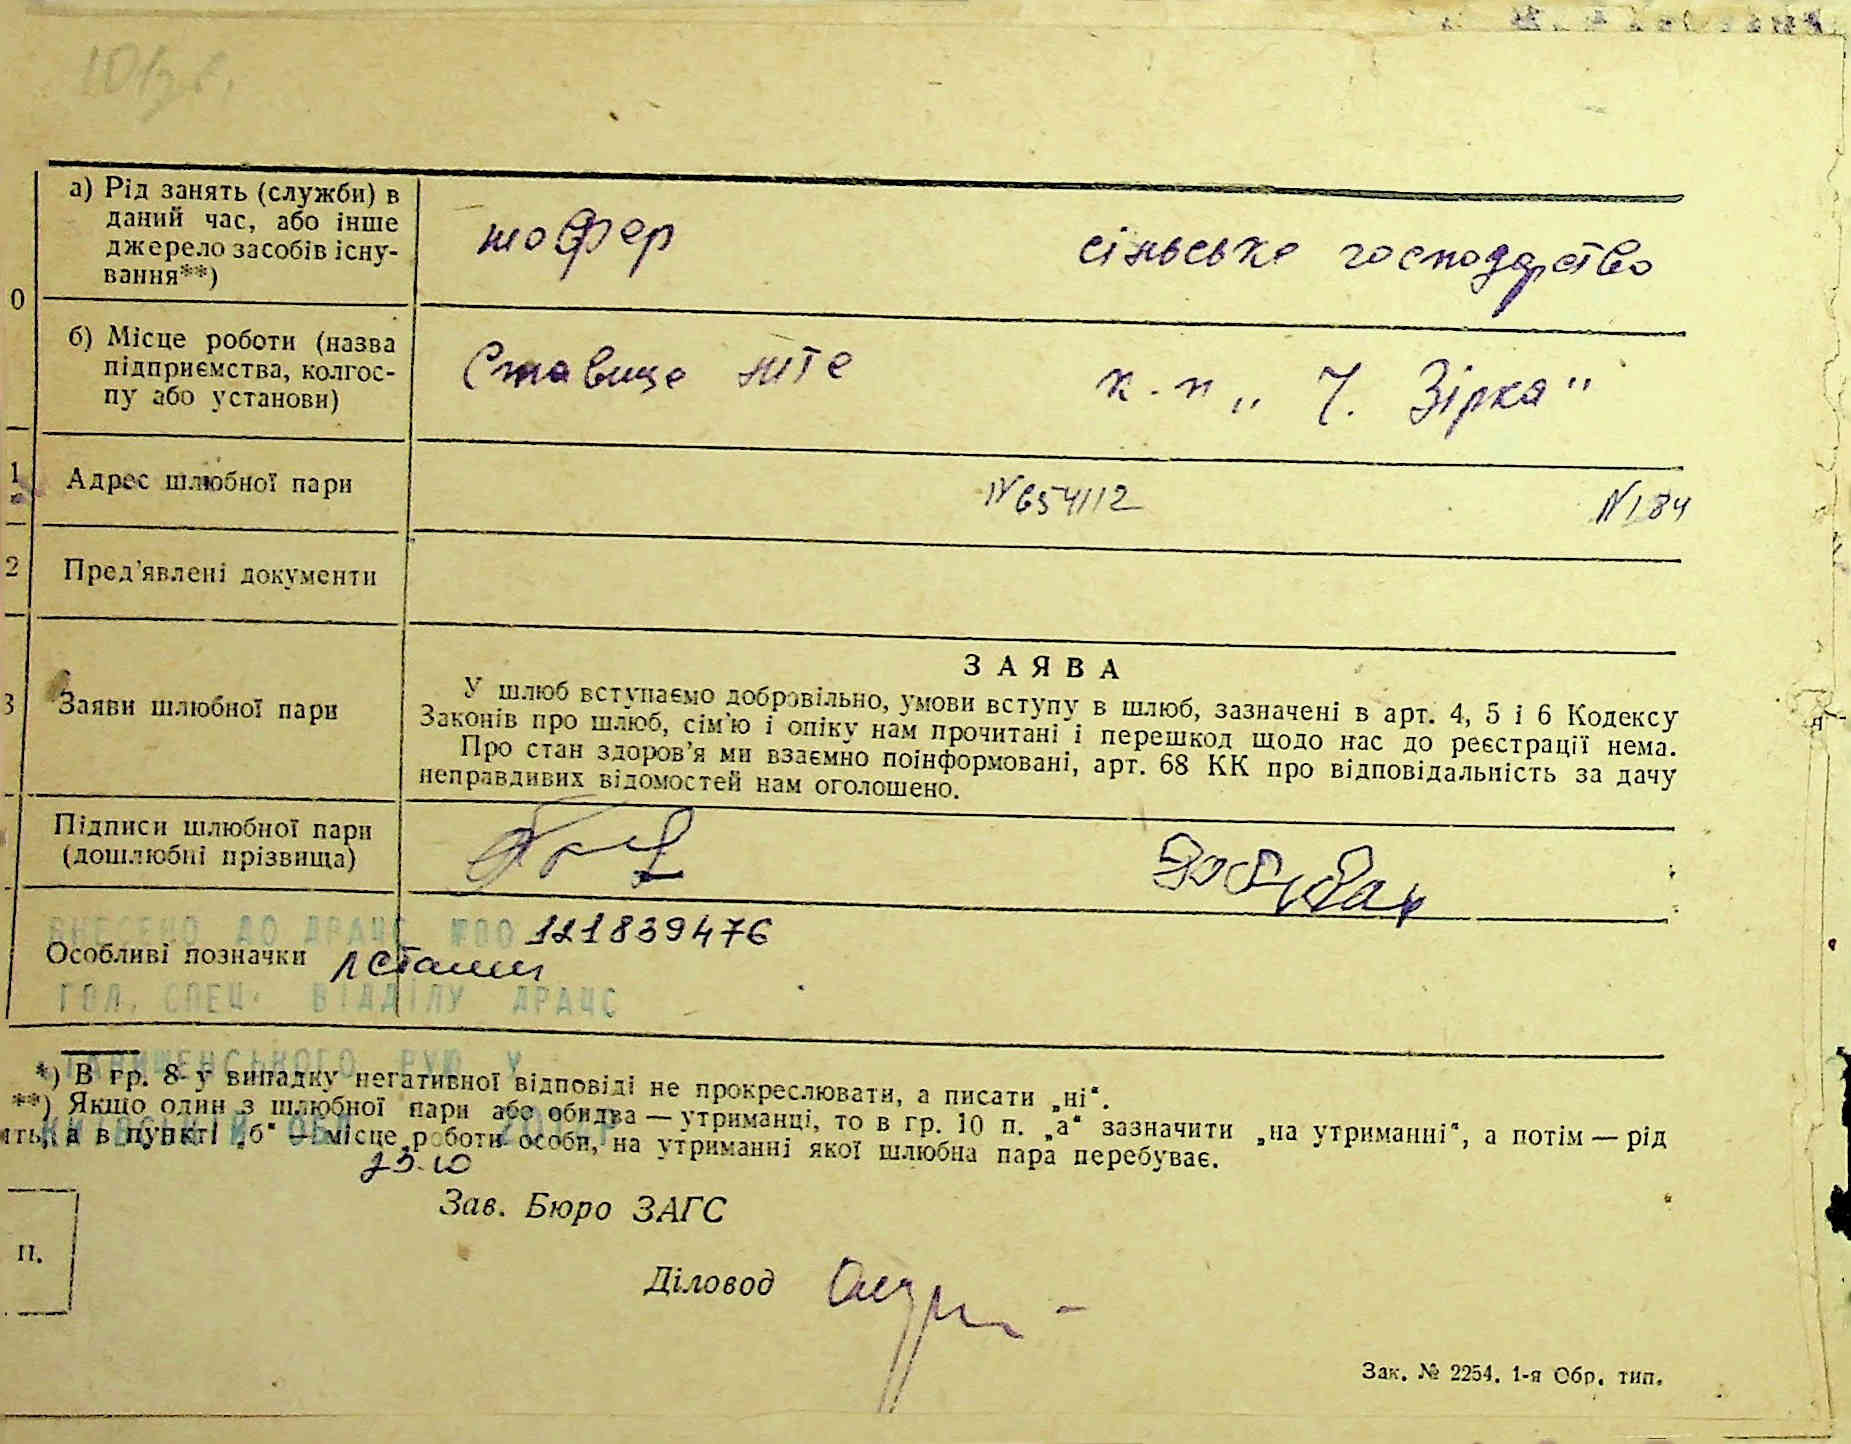 0
а) Рід занять (служби) в
даний час, або інше
джерело засобів існу-
вання**)
шофер
сільське господарство
б) Місце роботи (назва
підприємства, колгос-
пу або установи)
Ставище
к-п „Ч. Зірка"
1
Адрес шлюбної пари
N 654112
N 184
2
Пред'явлені документи
3
Заяви шлюбної пари
ЗАЯВА
У шлюб вступаємо добровільно, умови вступу в шлюб, зазначені в арт. 4, 5 і 6 Кодексу
Законів про шлюб, сім'ю і опіку нам прочитані і перешкод щодо нас до реєстрації нема.
Про стан здоров'я ми взаємно поінформовані, арт. 68 КК про відповідальність за дачу
неправдивих відомостей нам оголошено.
Підписи шлюбної пари
(дошлюбні прізвища)
ВНЕСЕНО ДО ДРАЦС №00 121839476
Особливі позначки
ГОЛ. СПЕЦ. ВІДДІЛУ ДРАЦС
СТАВИЩЕНСЬКОГО РУЮ У
*) В гр. 8 у випадку негативної відповіді не прокреслювати, а писати „ні“.
**) Якщо один з шлюбної пари або обидва — утриманці, то в гр. 10 п. „а“ зазначити „на утриманні“, а потім — рід
ять, а в пункті „б“ — місце роботи особи, на утриманні якої шлюбна пара перебуває.
23.10
Зав. Бюро ЗАГС
П.
Діловод
Зак. № 2254. 1-я Обр. тип.